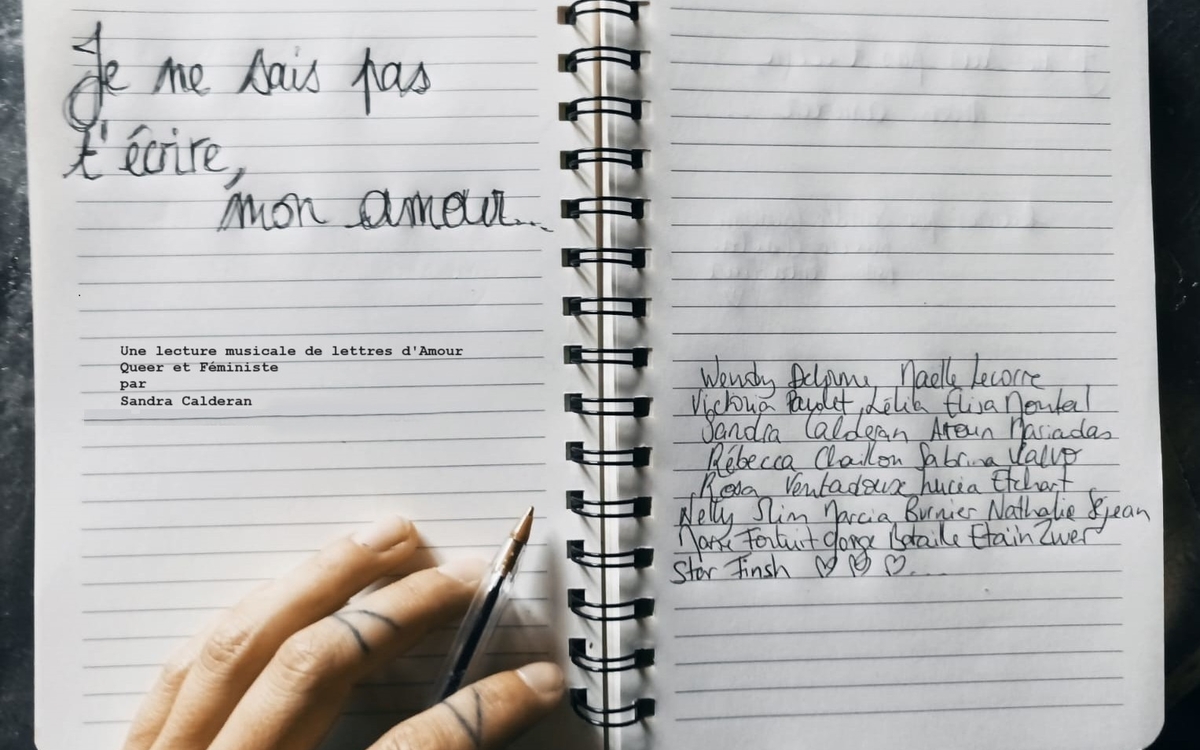 Je ne sais pas
t'écrire,
mon amour...
Une lecture musicale de lettres d'Amour
Queer et Féministe
par
Sandra Calderan
Wendy Delorme, Naëlle Lecorre
Victoria Paulet, Lélia Elisa Montel
Sandra Calderan Atoun Mariadas
Rébecca Chaillon Sabrina Calvo
Rosa Ventadoux Lucia Etchart
Nelly Slim Marcia Burnier Nathalie Sejean
Marre Fortuit Bataille Etaïn Zwer
Star Finsh ♡ ♡ ♡....